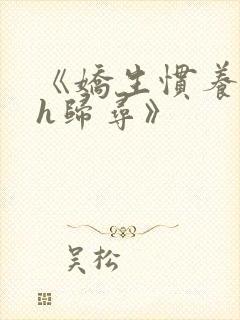 《嬌生慣養
h歸尋》
吴松